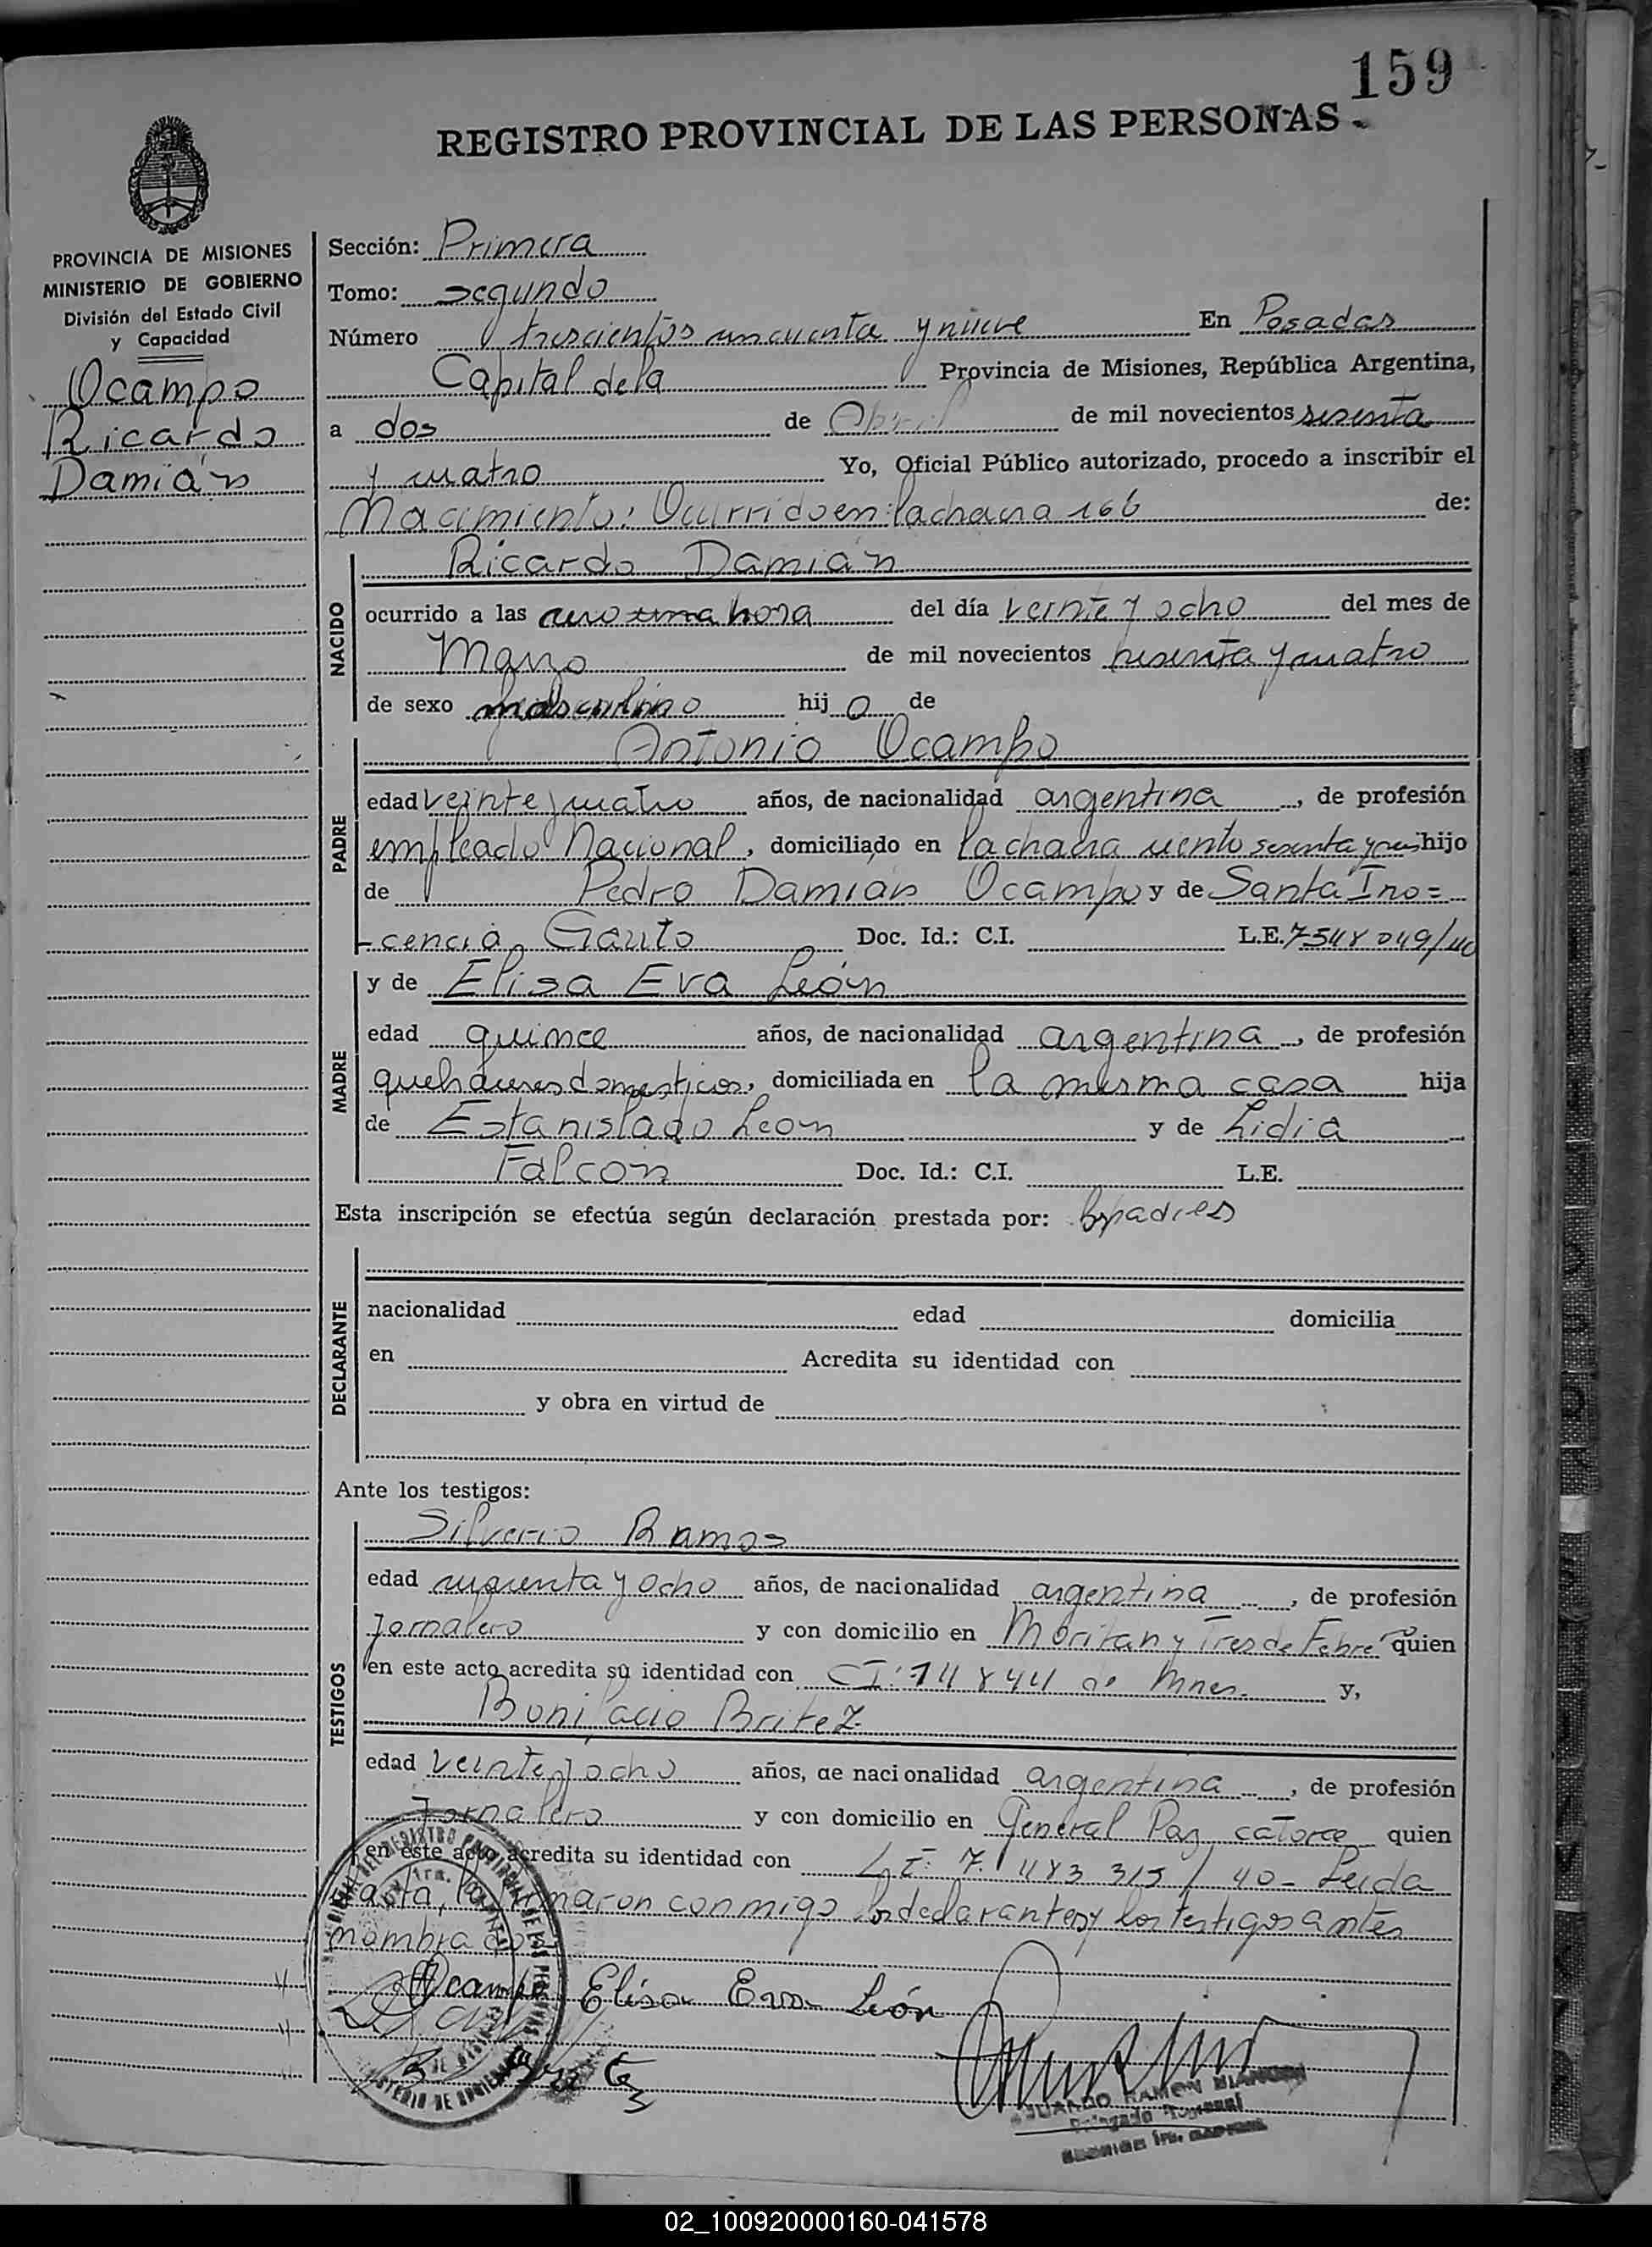 159
REGISTRO PROVINCIAL DE LAS PERSONAS
PROVINCIA DE MISIONES
MINISTERIO DE GOBIERNO
División del Estado Civil
y Capacidad
Ocampo
Ricardo
Damián
Sección: Primera
Tomo: segundo
Número trescientos cincuenta y nueve En Posadas
Capital de la Provincia de Misiones, República Argentina,
a dos de Abril de mil novecientos sesenta
y cuatro Yo, Oficial Público autorizado, procedo a inscribir el
Nacimiento: Ocurrido en: la chacra 166 de:
NACIDO
Ricardo Damián
ocurrido a las hora del día veinte y ocho del mes de
Marzo de mil novecientos sesenta y cuatro
de sexo masculino hijo de
PADRE
Antonio Ocampo
edad veinte y cuatro años, de nacionalidad argentina, de profesión
empleado Nacional, domiciliado en la chacra ciento sesenta y seis hijo
de Pedro Damián Ocampo y de Santa Ino=
cencia Gauto Doc. Id.: C.I. L.E. 7548049/40
MADRE
y de Elisa Eva León
edad quince años, de nacionalidad argentina, de profesión
quehaceres domesticos, domiciliada en la misma casa hija
de Estanislado Leon y de Lidia
Falcon Doc. Id.: C.I. L.E.
Esta inscripción se efectúa según declaración prestada por: los padres
DECLARANTE
nacionalidad edad domicilia
en Acredita su identidad con
y obra en virtud de
Ante los testigos:
TESTIGOS
Silverio Ramos
edad cuarenta y ocho años, de nacionalidad argentina, de profesión
Jornalero y con domicilio en y Tres de Febre quien
en este acto acredita su identidad con CI: 14844 de Mnes. y,
Bonifacio Britez
edad veinte y ocho años, de nacionalidad argentina, de profesión
Jornalero y con domicilio en General Paz catorce quien
en este acto acredita su identidad con L.E: 7.483 315/40- Leida
acta, la firmaron conmigo los declarantes y los testigos antes
nombrados
Ocampo Elisa Eva León
RAMON
Delegado
02_100920000160-041578